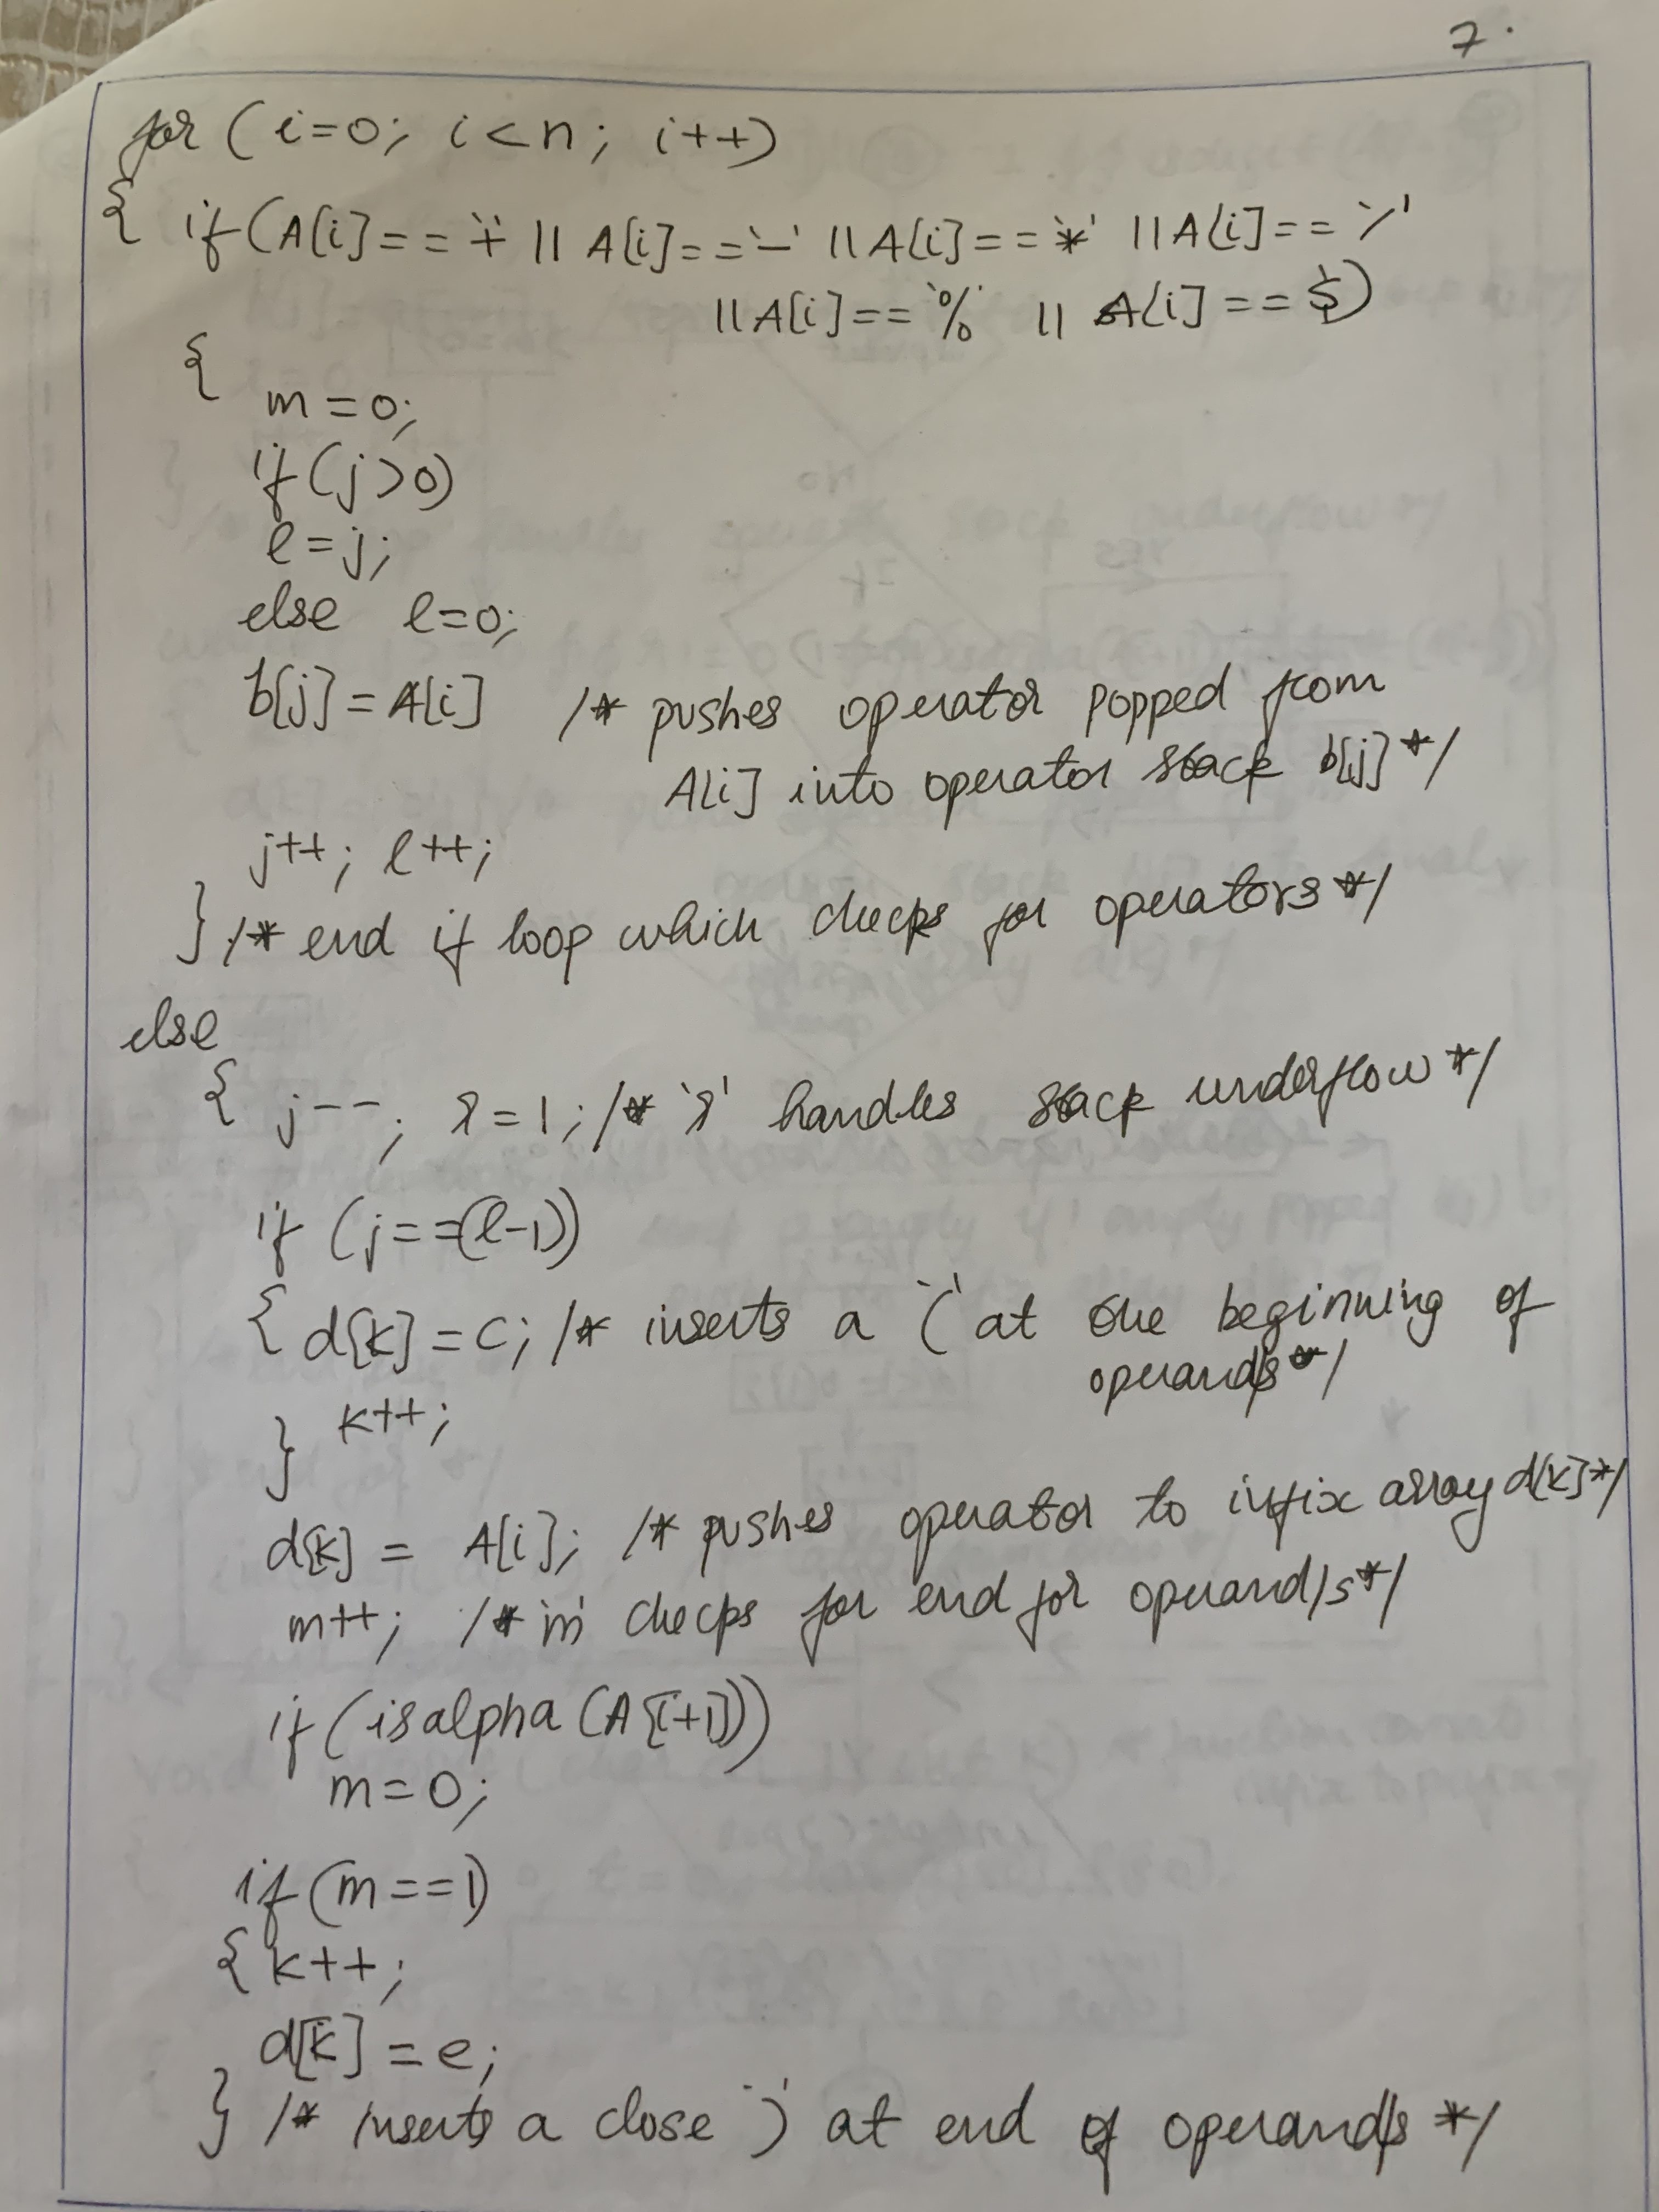 7.
for (i=0; i<n; i++)
{ if(A[i]=='+' || A[i]=='-' || A[i]=='*' || A[i]=='/'
|| A[i]=='%' || A[i]=='$')
{
m=0;
if(j>0)
l=j;
else l=0;
b[j]=A[i] /* pushes operator popped from
A[i] into operator stack b[j]*/
j++; l++;
} /* end if loop which checks for operators*/
else
{ j--; r=1; /* 'r' handles stack underflow*/
if (j==(l-1))
{ d[k]=c; /* inserts a '(' at the beginning of
operand/s*/
k++;
}
d[k] = A[i]; /* pushes operator to infix array d[k]*/
m++; /* 'm' checks for end for operand/s*/
if(isalpha(A[i+1]))
m=0;
if(m==1)
{ k++;
d[k]=e;
} /* inserts a close ')' at end of operand/s */